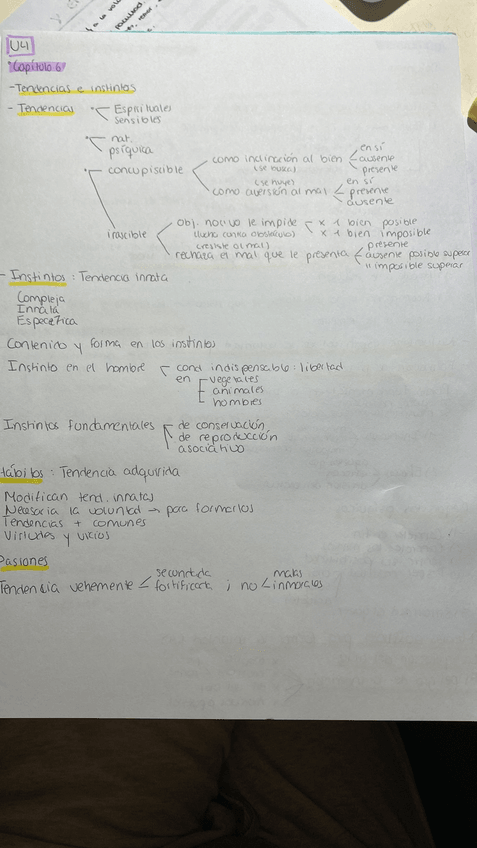 U4
Capítulo 6
- Tendencias e instintos
- Tendencias
Espirituales
sensibles
nat.
psíquica
concupiscible
como inclinación al bien
(se busca)
en sí
ausente
presente
(se huye)
como aversión al mal
en sí
presente
ausente
irascible
Obj. nocivo le impide
(lucha contra obstáculos)
x + bien posible
x + bien imposible
(resiste al mal)
rechaza el mal que le presenta
presente
ausente posible superar
" imposible superar
- Instintos: Tendencia innata
Compleja
Innata
Específica
Contenido y forma en los instintos
Instinto en el hombre
cond indispensable: libertad
en
vegetales
animales
hombres
Instintos fundamentales
de conservación
de reproducción
asociativo
Hábitos: Tendencia adquirida
Modifican tend. innatas
Necesaria la voluntad → para formarlos
Tendencias + comunes
Virtudes y vicios
Pasiones
Tendencia vehemente
fortificada ; no
malas
inmorales